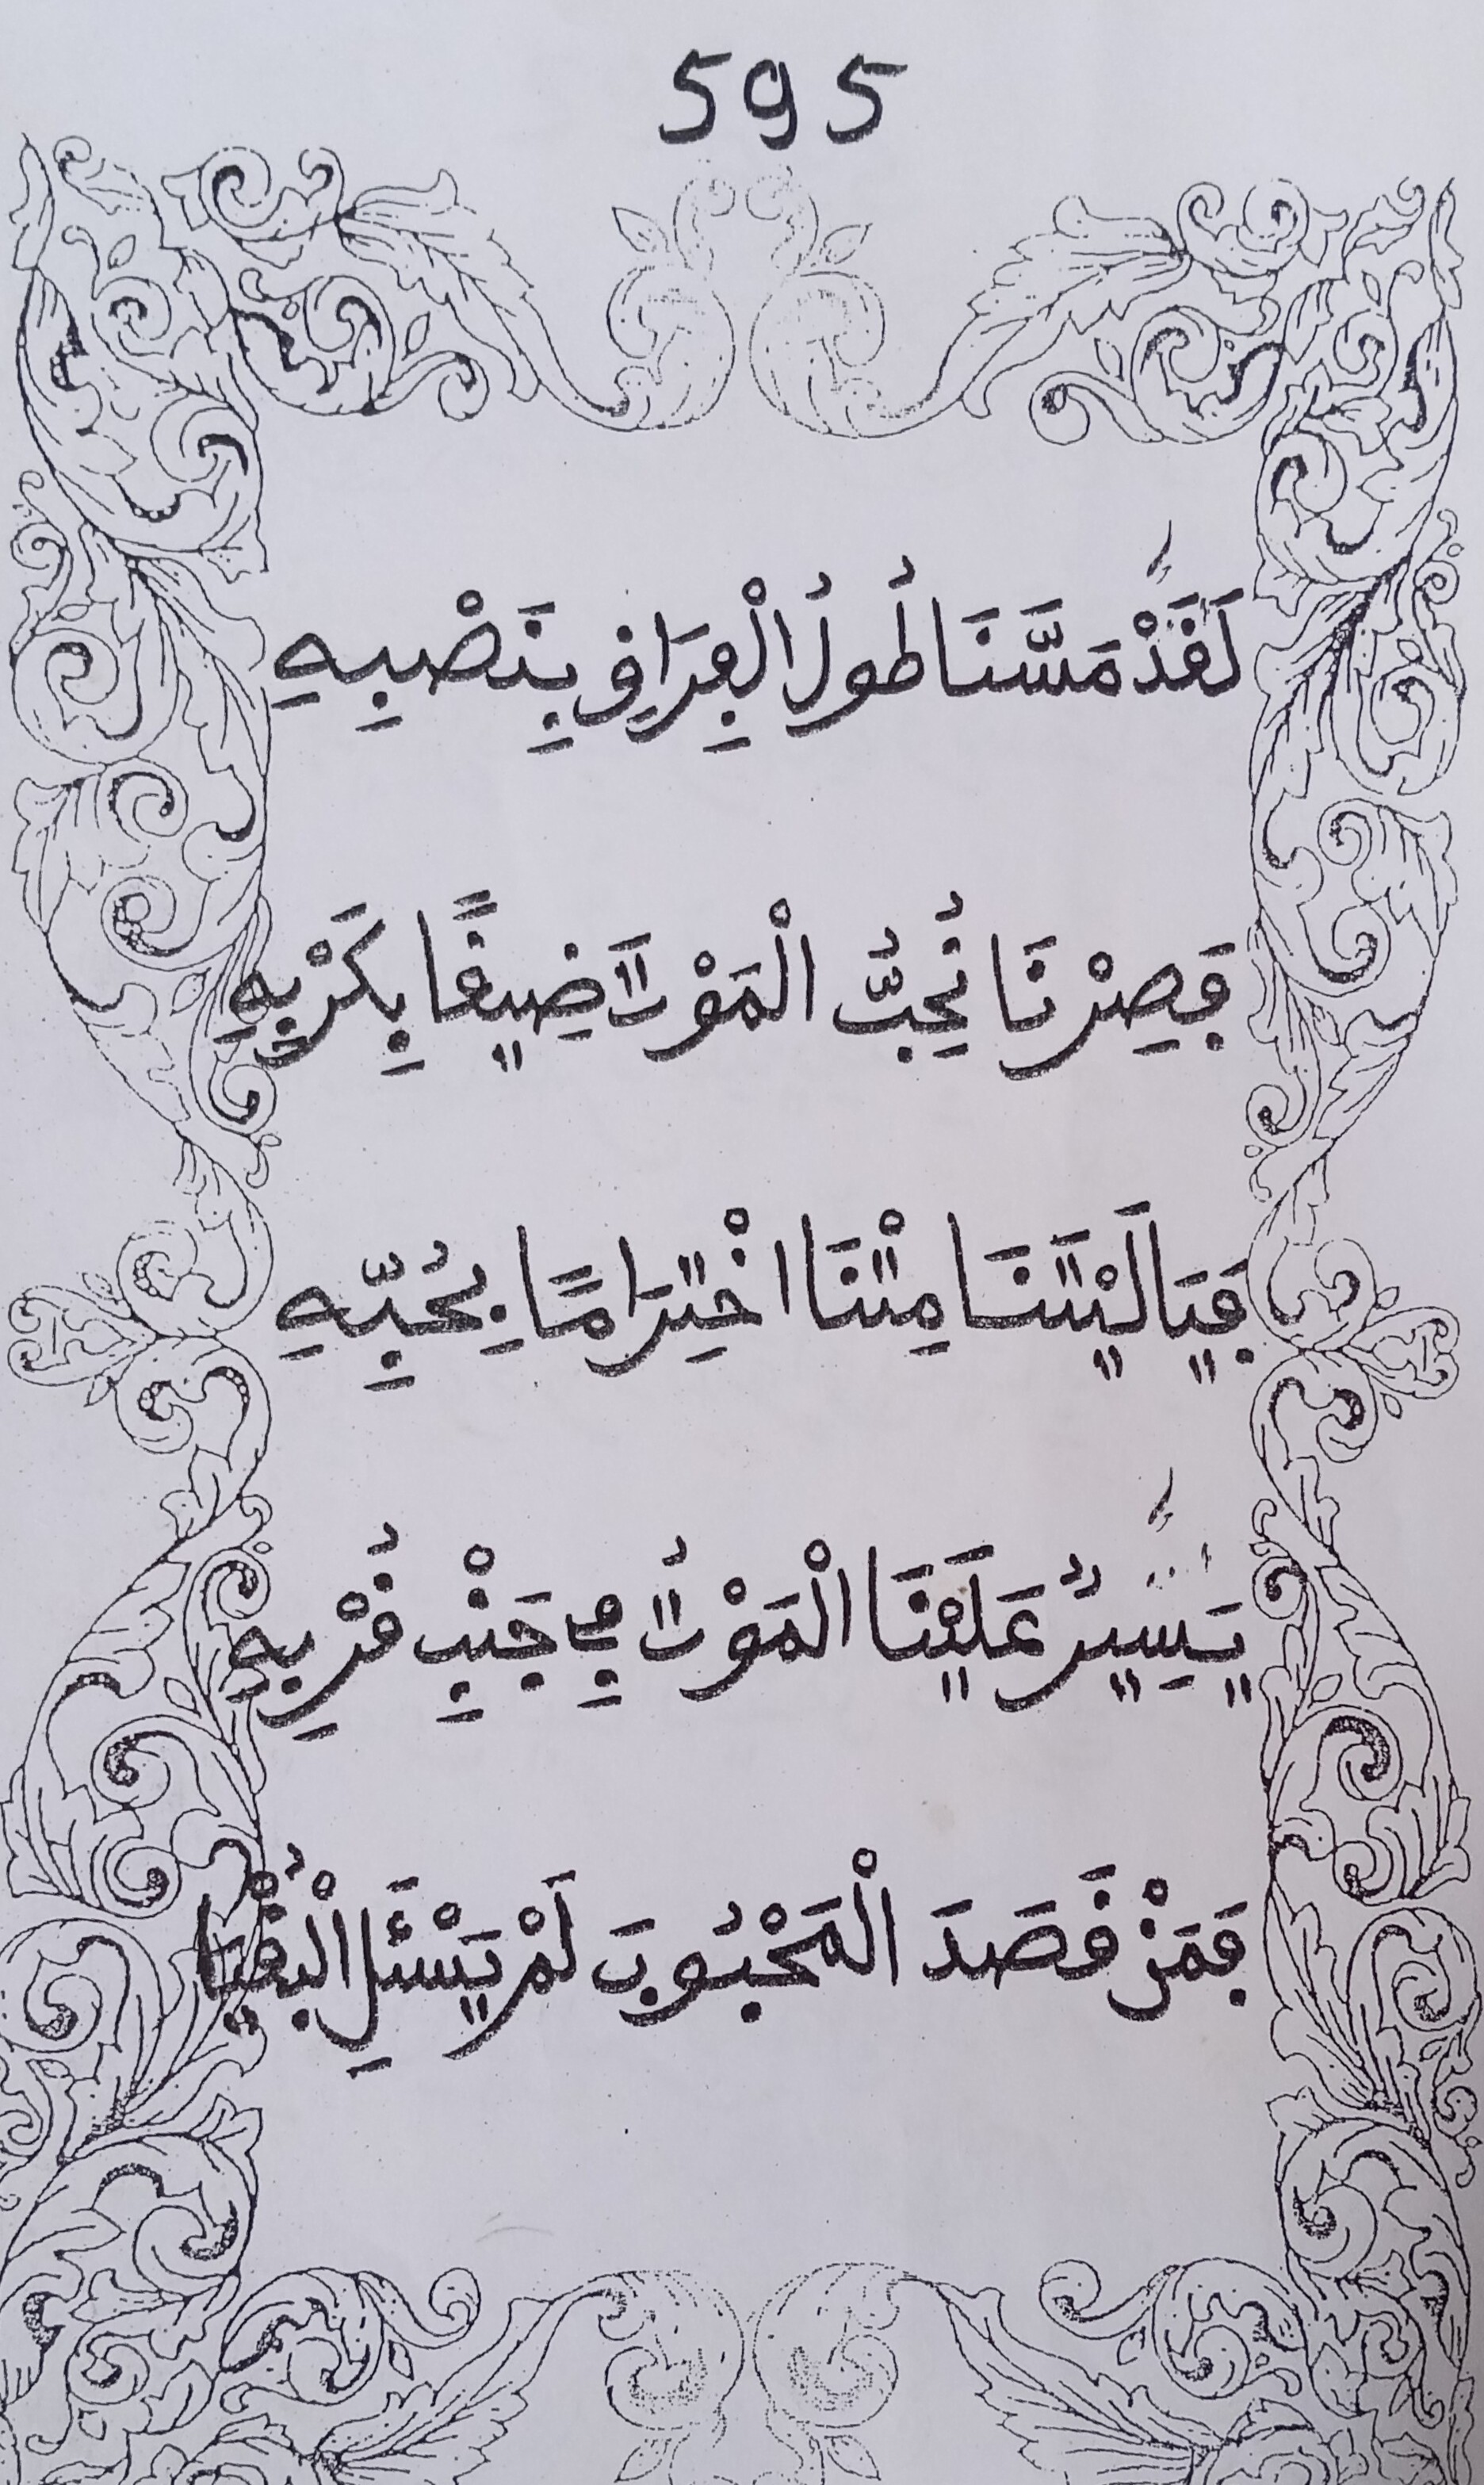 595
لَقَدْ مَسَّنَا طُولُ الْفِرَاقِ بِنَصْبِهِ
فَصِرْنَا نُحِبُّ الْمَوْتَ ضِيقًا بِكَرْبِهِ
فَيَا لَيْتَنَا مِتْنَا اخْتِرَامًا بِحُبِّهِ
يَسِيرٌ عَلَيْنَا الْمَوْتُ فِي جَنْبِ قُرْبِهِ
فَمَنْ قَصَدَ الْمَحْبُوبَ لَمْ يَسْئَلِ الْبُقْيَا